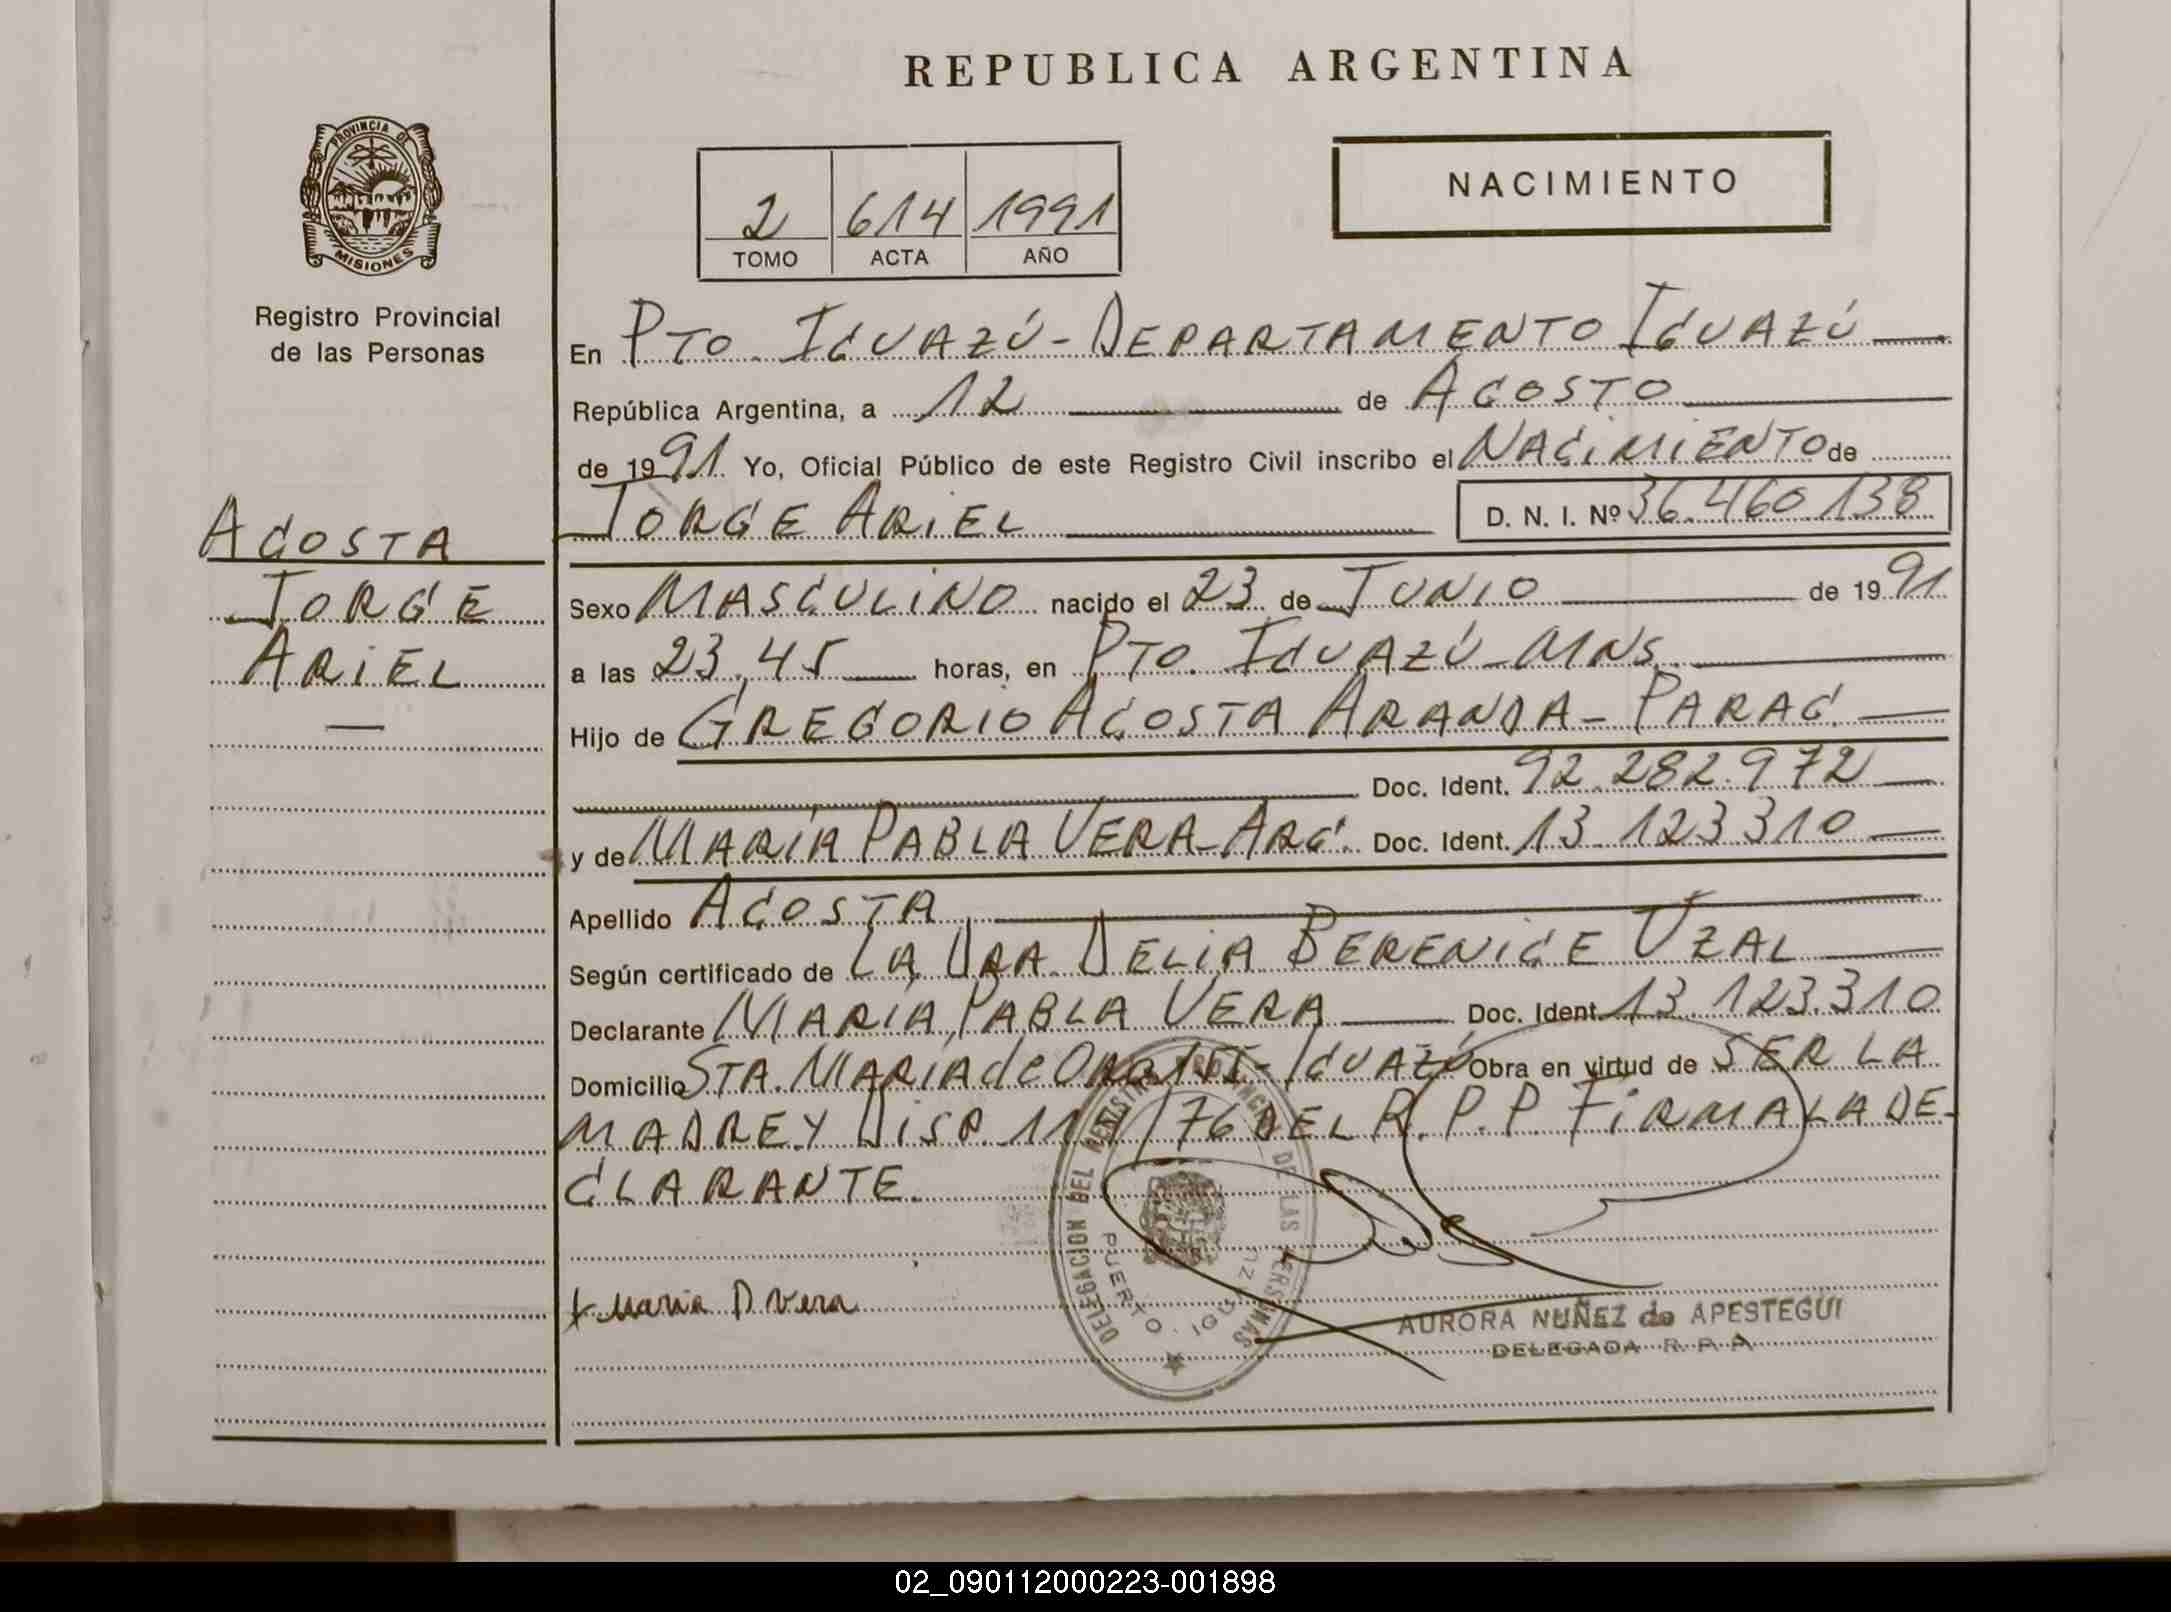 REPUBLICA ARGENTINA
PROVINCIA DE
MISIONES
Registro Provincial
de las Personas
NACIMIENTO
2 614 1991
TOMO ACTA AÑO
En PTO. IGUAZÚ - DEPARTAMENTO IGUAZÚ
República Argentina, a 12 de AGOSTO
de 1991 Yo, Oficial Público de este Registro Civil inscribo el NACIMIENTO de
JORGE ARIEL D. N. I. Nº 36.460.138
ACOSTA
JORGE
ARIEL
Sexo MASCULINO nacido el 23 de JUNIO de 1991
a las 23,45 horas, en PTO. IGUAZÚ - MNS.
Hijo de GREGORIO ACOSTA ARANDA - PARAG.
Doc. Ident. 92.282.972
y de MARÍA PABLA VERA - ARG. Doc. Ident. 13.123.310
Apellido ACOSTA
Según certificado de LA DRA. DELIA BERENICE UZAL
Declarante MARÍA PABLA VERA Doc. Ident. 13.123.310
Domicilio STA. MARÍA de IGUAZÚ Obra en virtud de SER LA
MADRE Y DISP. /76 DEL R. P. P. FIRMA LA DE-
CLARANTE.
DELEGACION DEL REGISTRO PROVINCIAL DE LAS PERSONAS
PUERTO IGUAZU
Maria P Vera
AURORA NUÑEZ de APESTEGUI
DELEGADA R. P. P.
02_090112000223-001898